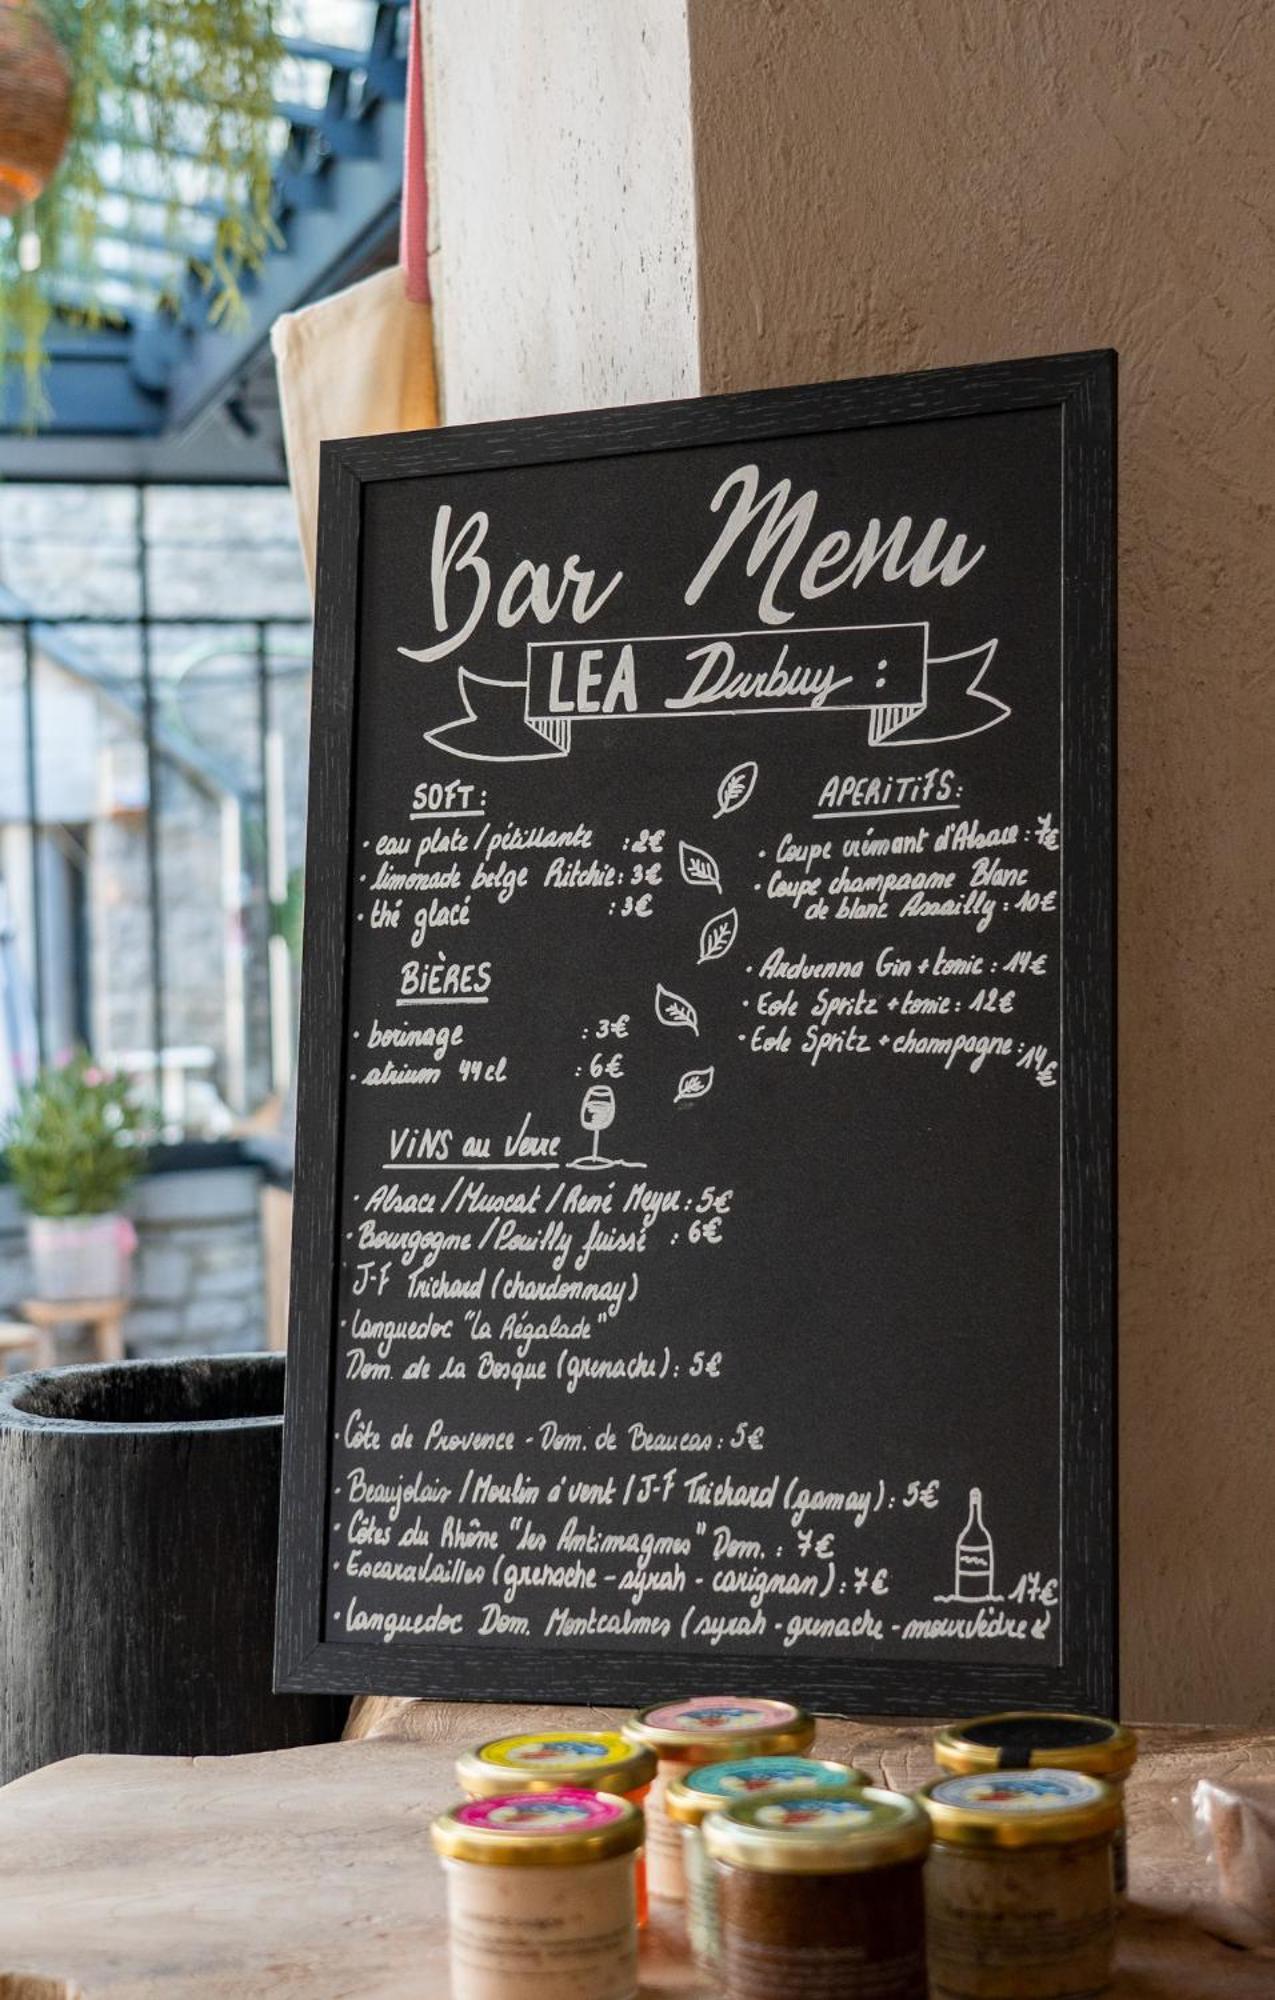 Bar Menu
LEA Durbuy :
SOFT :
• eau plate / pétillante : 2€
• limonade belge Ritchie : 3€
• thé glacé : 3€
BIÈRES
• borinage : 3€
• atrium 44cl : 6€
APERITIFS :
• Coupe crémant d'Alsace : 7€
• Coupe champagne Blanc
de blanc Assailly : 10€
• Arduenna Gin + tonic : 14€
• Eole Spritz + tonic : 12€
• Eole Spritz + champagne : 14€
VINS au verre
• Alsace / Muscat / René Meyer : 5€
• Bourgogne / Pouilly fuissé : 6€
J-F Trichard (chardonnay)
• Languedoc "La Régalade"
Dom. de la Bosque (grenache) : 5€
• Côte de Provence - Dom. de Beaucas : 5€
• Beaujolais / Moulin à vent / J-F Trichard (gamay) : 5€
• Côtes du Rhône "les Antimagnes" Dom. : 7€
• Escaravailles (grenache - syrah - carignan) : 7€
17€
• Languedoc Dom. Montcalmes (syrah - grenache - mourvèdre